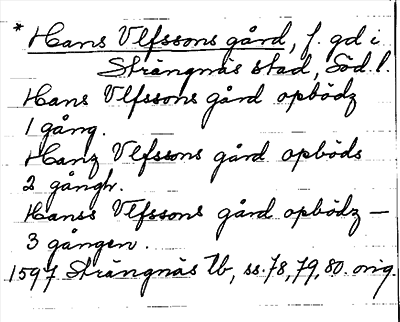 * Hans Ulfssons gård, f. gd i
Strängnäs stad, Söd. l.
Hans Ulfssons gård opbödz
1 gång.
Hanz Ulfssons gård opböds
2 gångh.
Hanss Ulfssons gård opbödz —
3 gången.
1597 Strängnäs tb, ss. 78, 79, 80. orig.